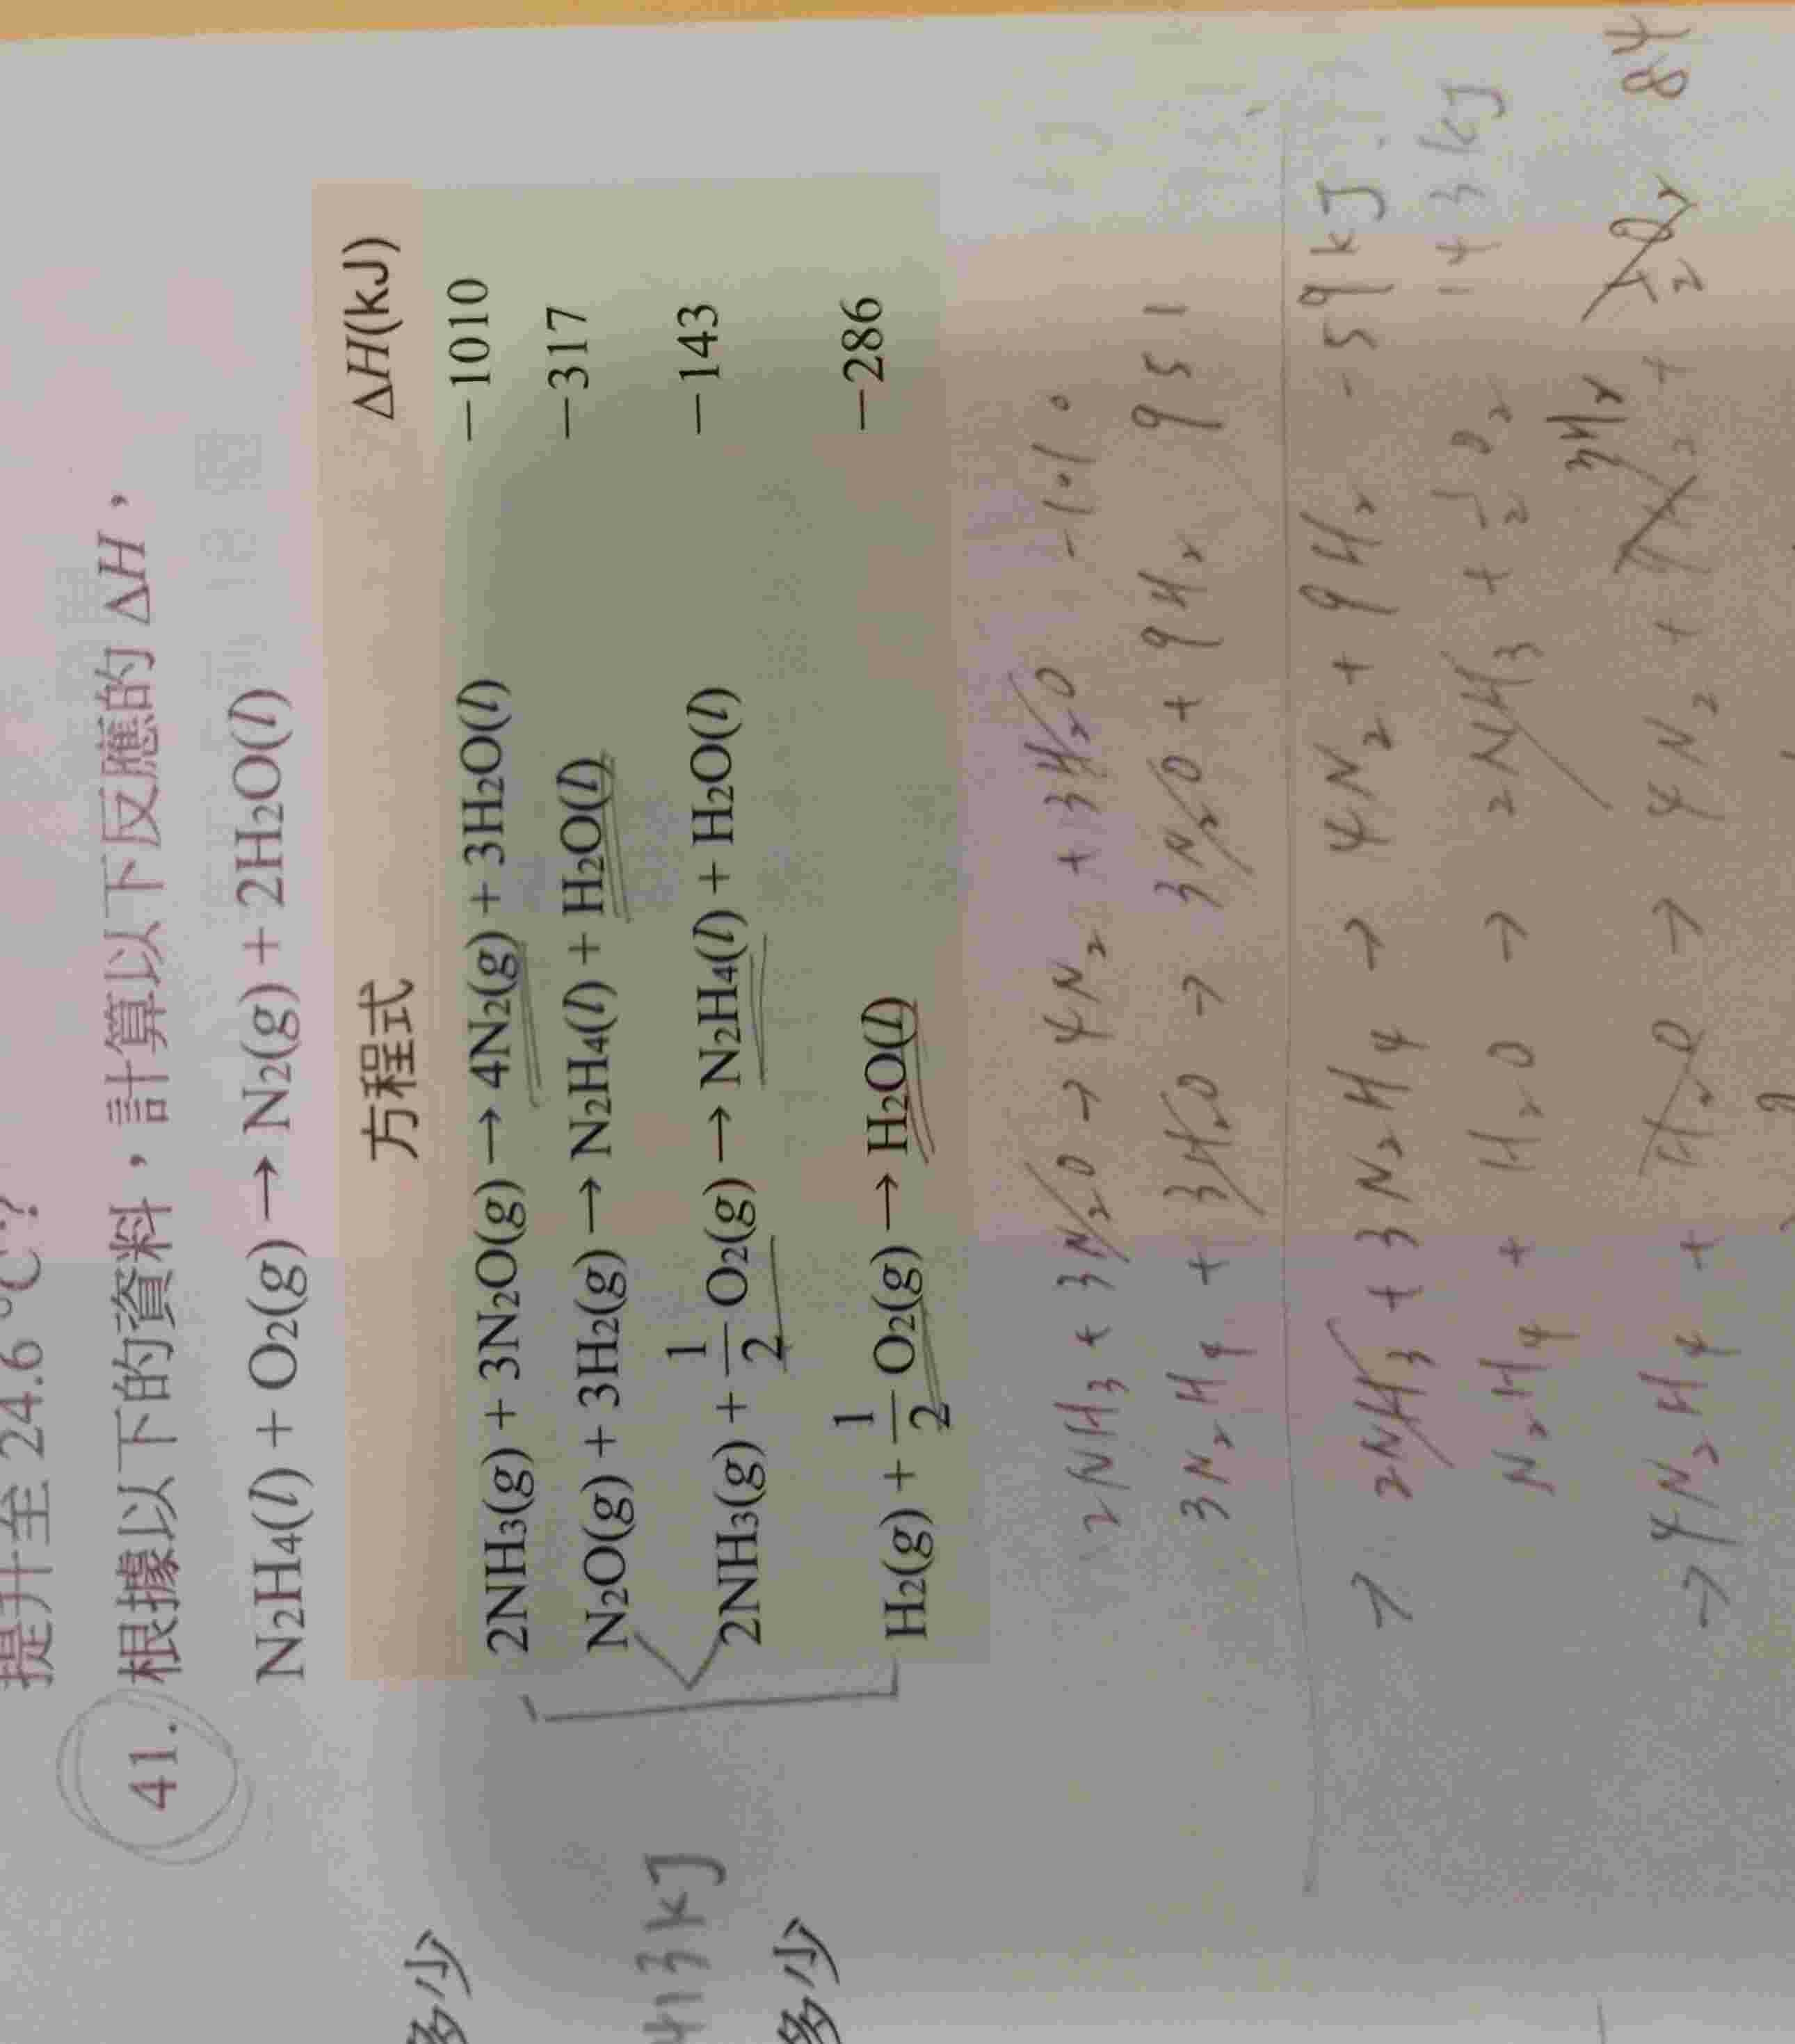 提升至 24.6 °C?
41. 根據以下的資料，計算以下反應的 ΔH，
N₂H₄(l) + O₂(g) → N₂(g) + 2H₂O(l)
方程式 ΔH(kJ)
2NH₃(g) + 3N₂O(g) → 4N₂(g) + 3H₂O(l) −1010
N₂O(g) + 3H₂(g) → N₂H₄(l) + H₂O(l) −317
2NH₃(g) + 1/2 O₂(g) → N₂H₄(l) + H₂O(l) −143
H₂(g) + 1/2 O₂(g) → H₂O(l) −286
2NH₃ + 3N₂O → 4N₂ + 3H₂O -1010
3N₂H₄ + 3H₂O → 3N₂O + 9H₂ 951
→ 2NH₃ + 3N₂H₄ → 4N₂ + 9H₂ -59kJ
N₂H₄ + H₂O → 2NH₃ + 1/2 O₂ 143kJ
9H₂
→ 4N₂H₄ + H₂O → 4N₂ + 1/2 O₂ 84
多少
413kJ
多少